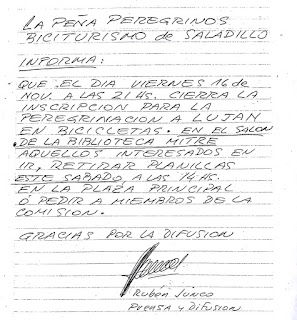 LA PEÑA PEREGRINOS
BICITURISMO de SALADILLO
INFORMA:
QUE EL DIA VIERNES 16 de
NOV. A LAS 21 HS. CIERRA LA
INSCRIPCION PARA LA
PEREGRINACION A LUJAN
EN BICICLETAS. EN EL SALON
DE LA BIBLIOTECA MITRE
AQUELLOS INTERESADOS EN
IR, RETIRAR PLANILLAS
ESTE SABADO, A LAS 14 HS.
EN LA PLAZA PRINCIPAL
Ó PEDIR A MIEMBROS DE LA
COMISION.
GRACIAS POR LA DIFUSION
Rubén Junco
Prensa y Difusion